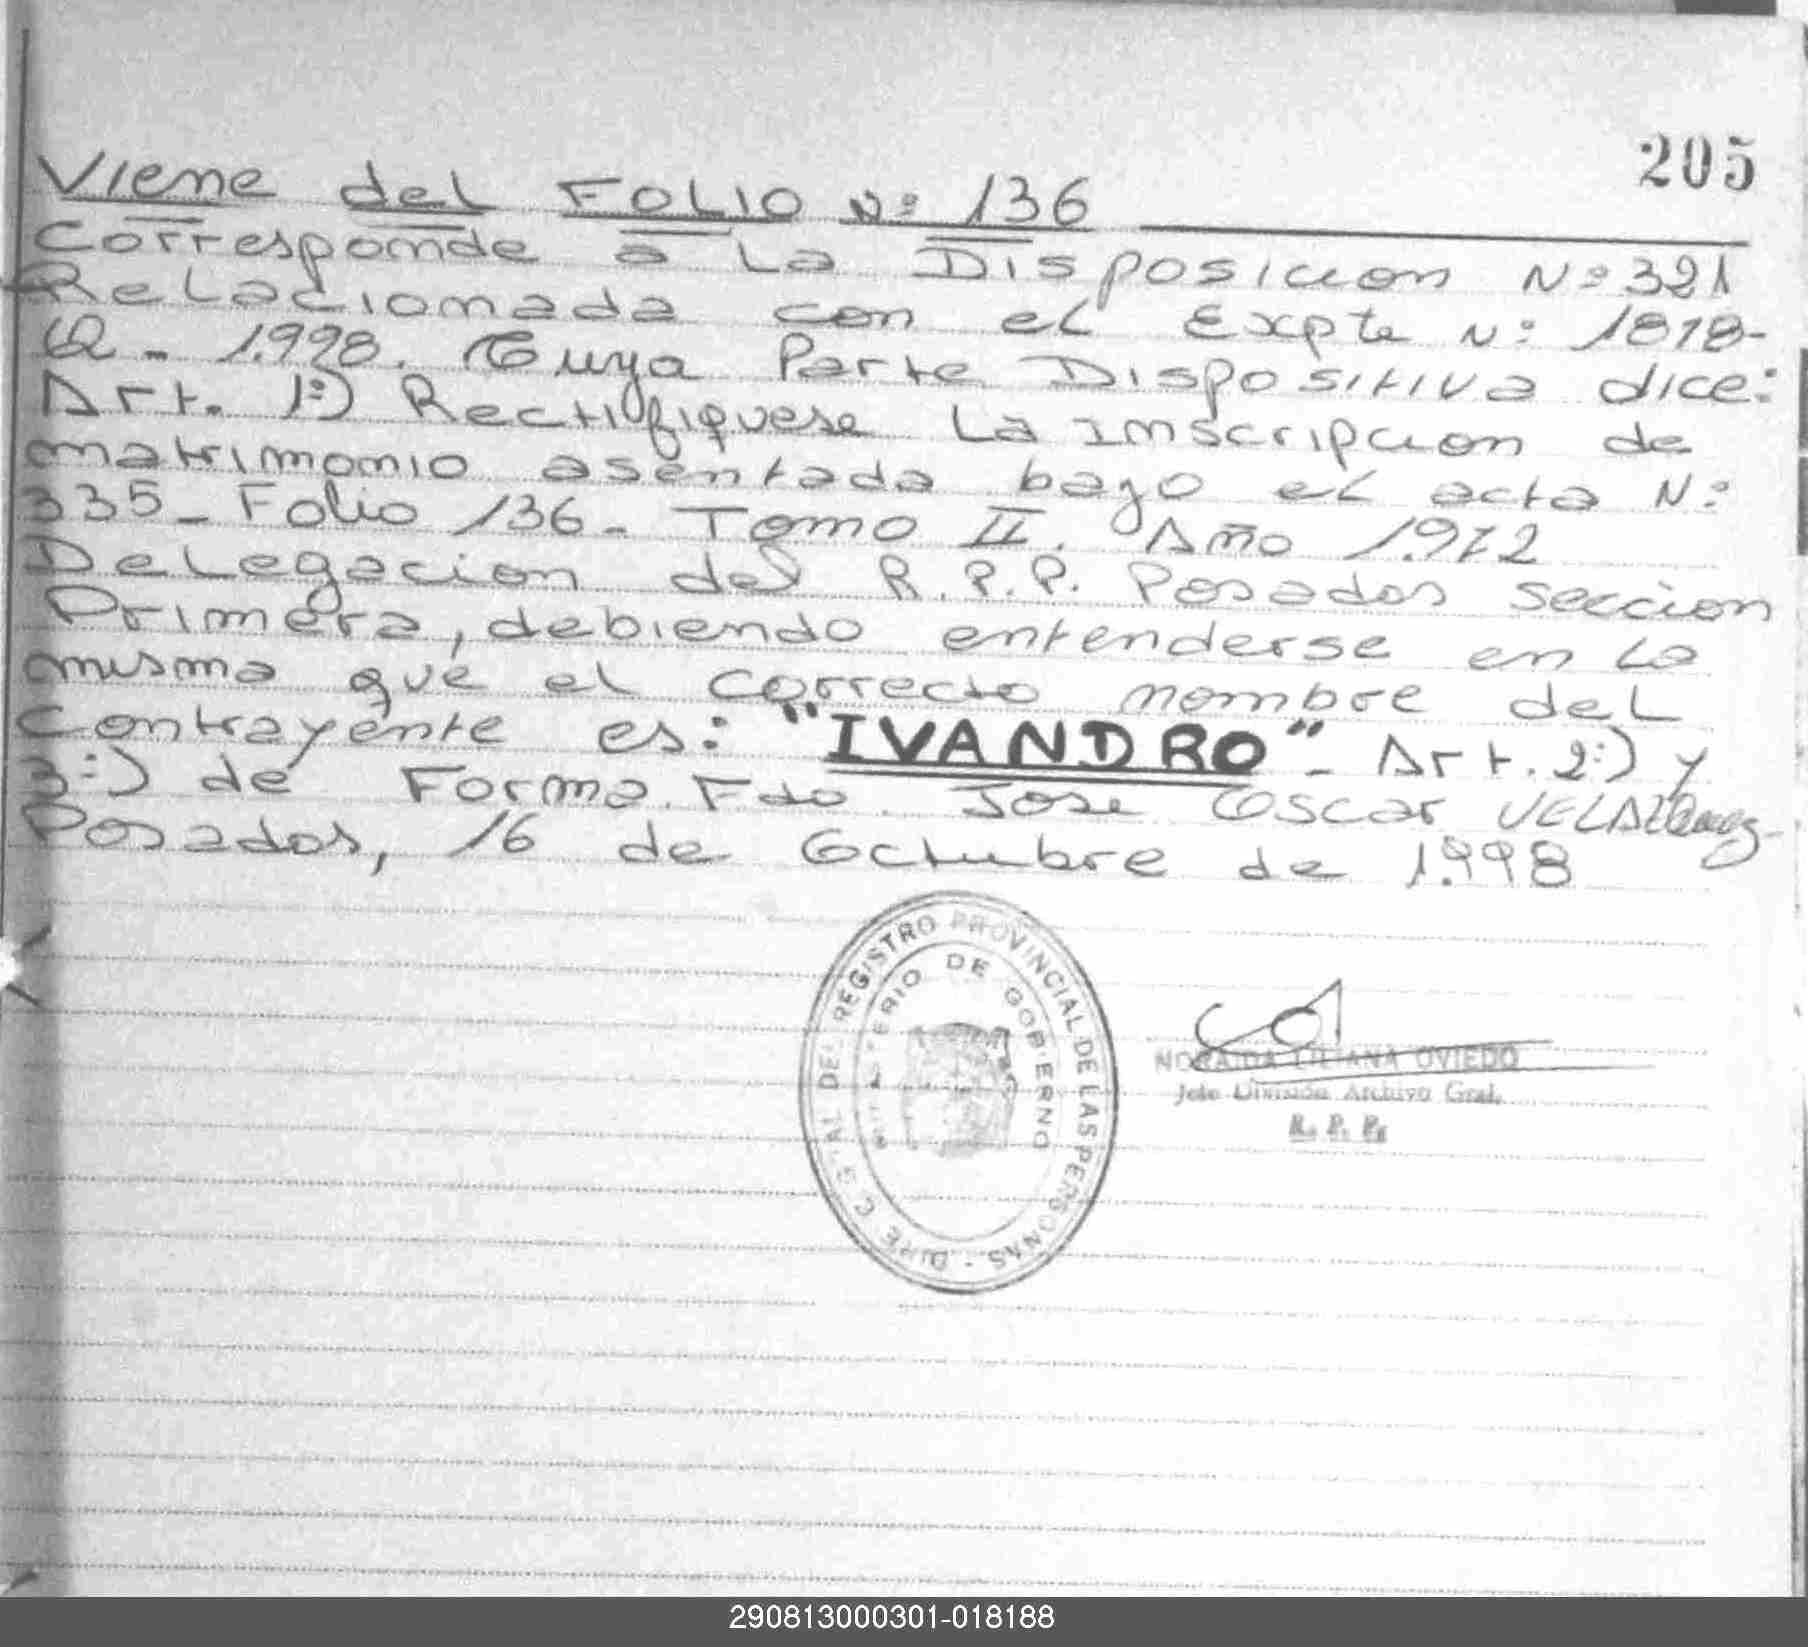 205
Viene del FOLIO Nº 136
Corresponde a La Disposicion Nº 321
Relacionada con el Expte Nº 1818-
1.998. Cuya Parte Dispositiva dice:
Art. 1º) Rectifiquese La Inscripcion de
matrimonio asentada bajo el acta Nº
335 - Folio 136 - Tomo II. Año 1.972
Delegacion del R.P.P. Posadas seccion
Primera, debiendo entenderse en La
misma que el correcto nombre del
Contrayente es: "IVANDRO" - Art. 2º) y
3º) de Forma. Fdo. Jose Oscar VELAZquez -
Posadas, 16 de Octubre de 1.998
DIRECC GRAL DEL REGISTRO PROVINCIAL DE LAS PERSONAS
MINISTERIO DE GOBIERNO
NORAIDA LILIANA OVIEDO
Jefe División Archivo Gral.
R. P. P.
290813000301-018188